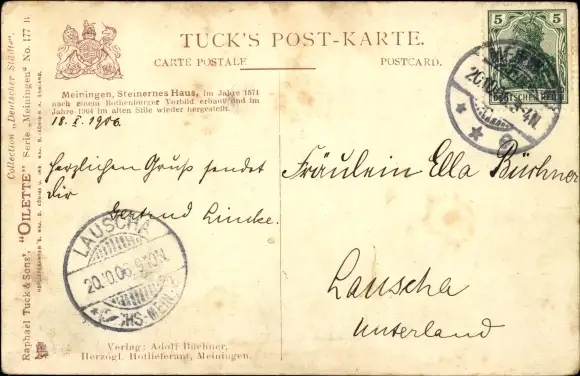 TUCK'S POST-KARTE.
CARTE POSTALE
POSTCARD.
Meiningen, Steinernes Haus, im Jahre 1571
nach einem Rothenburger Vorbild erbaut und im
Jahre 1904 im alten Stile wieder hergestellt.
18. X. 1906.
Herzlichen Gruß sendet
Dir
Gertrud Lincke.
Fräulein Ella Büchner
Lauscha
Unterland
5 5
LAUSCHA
20.10.06. 9-10N.
Verlag: Adolf Büchner,
Herzogl. Hoflieferant, Meiningen.
Collection „Deutscher Städte“.
Raphael Tuck & Sons', "OILETTE" Serie „Meiningen“ No. 177 B.